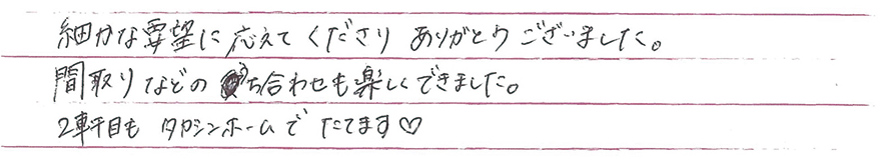 細かな要望に応えてくださり ありがとうございました。
間取りなどの 打ち合わせも楽しくできました。
2軒目も タカシンホームで たてます♡